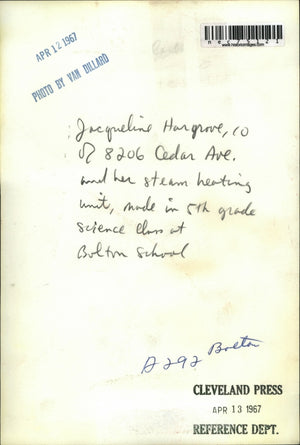 APR 12 1967
PHOTO BY VAN DILLARD
www.historicimages.com
Jacqueline Hargrove, 10
of 8206 Cedar Ave.
and her steam heating
unit, made in 5th grade
science class at
Bolton School
Bolton
CLEVELAND PRESS
APR 13 1967
REFERENCE DEPT.